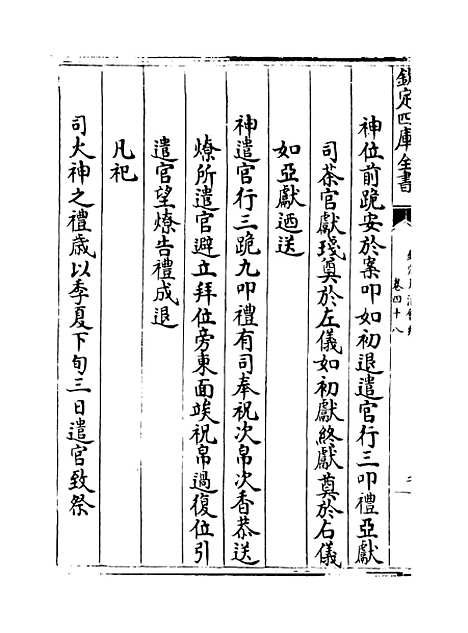 欽定四庫全書
卷四十八
神位前跪安於案叩如初退遣官行三叩禮亞獻
司爵官獻爵奠於左儀如初獻終獻奠於右儀
如亞獻迺送
神遣官行三跪九叩禮有司奉祝次帛次香恭送
燎所遣官避立拜位旁東面竢祝帛過復位引
遣官望燎告禮成退
凡祀
司火神之禮歲以季夏下旬三日遣官致祭